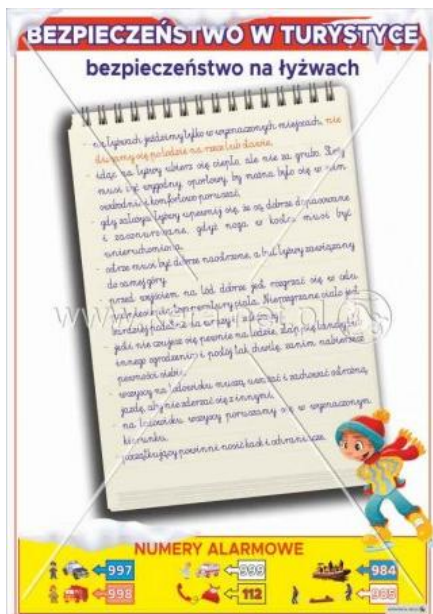 BEZPIECZEŃSTWO W TURYSTYCE
bezpieczeństwo na łyżwach
- na łyżwach jeździmy tylko w wyznaczonych miejscach, nie
ślizgamy się po lodzie na rzece lub stawie,
- idąc na łyżwy ubierz się ciepło, ale nie za grubo. Strój
musi być wygodny, sportowy, by można było się w nim
swobodnie i komfortowo poruszać,
- gdy założysz łyżwy upewnij się, że są dobrze dopasowane
i zasznurowane, gdyż noga w kostce musi być
unieruchomiona,
- ostrze musi być dobrze naostrzone, a but łyżwy zawiązany
do samej góry,
- przed wejściem na lód dobrze jest rozgrzać się w celu
temperatury ciała. Nierozgrzane ciało jest
bardziej podatne na urazy i
- jeśli nie czujesz się pewnie na lodzie, złap się bandy lub
innego ogrodzenia i postój tak chwilę, zanim nabierzesz
pewności siebie,
- wszyscy na lodowisku muszą uważać i zachować ostrożną
jazdę, aby nie zderzać się z innymi,
- na lodowisku wszyscy poruszamy się w wyznaczonym
kierunku,
- początkujący powinni nosić kask i ochraniacze.
NUMERY ALARMOWE
997 999 984
998 112 985